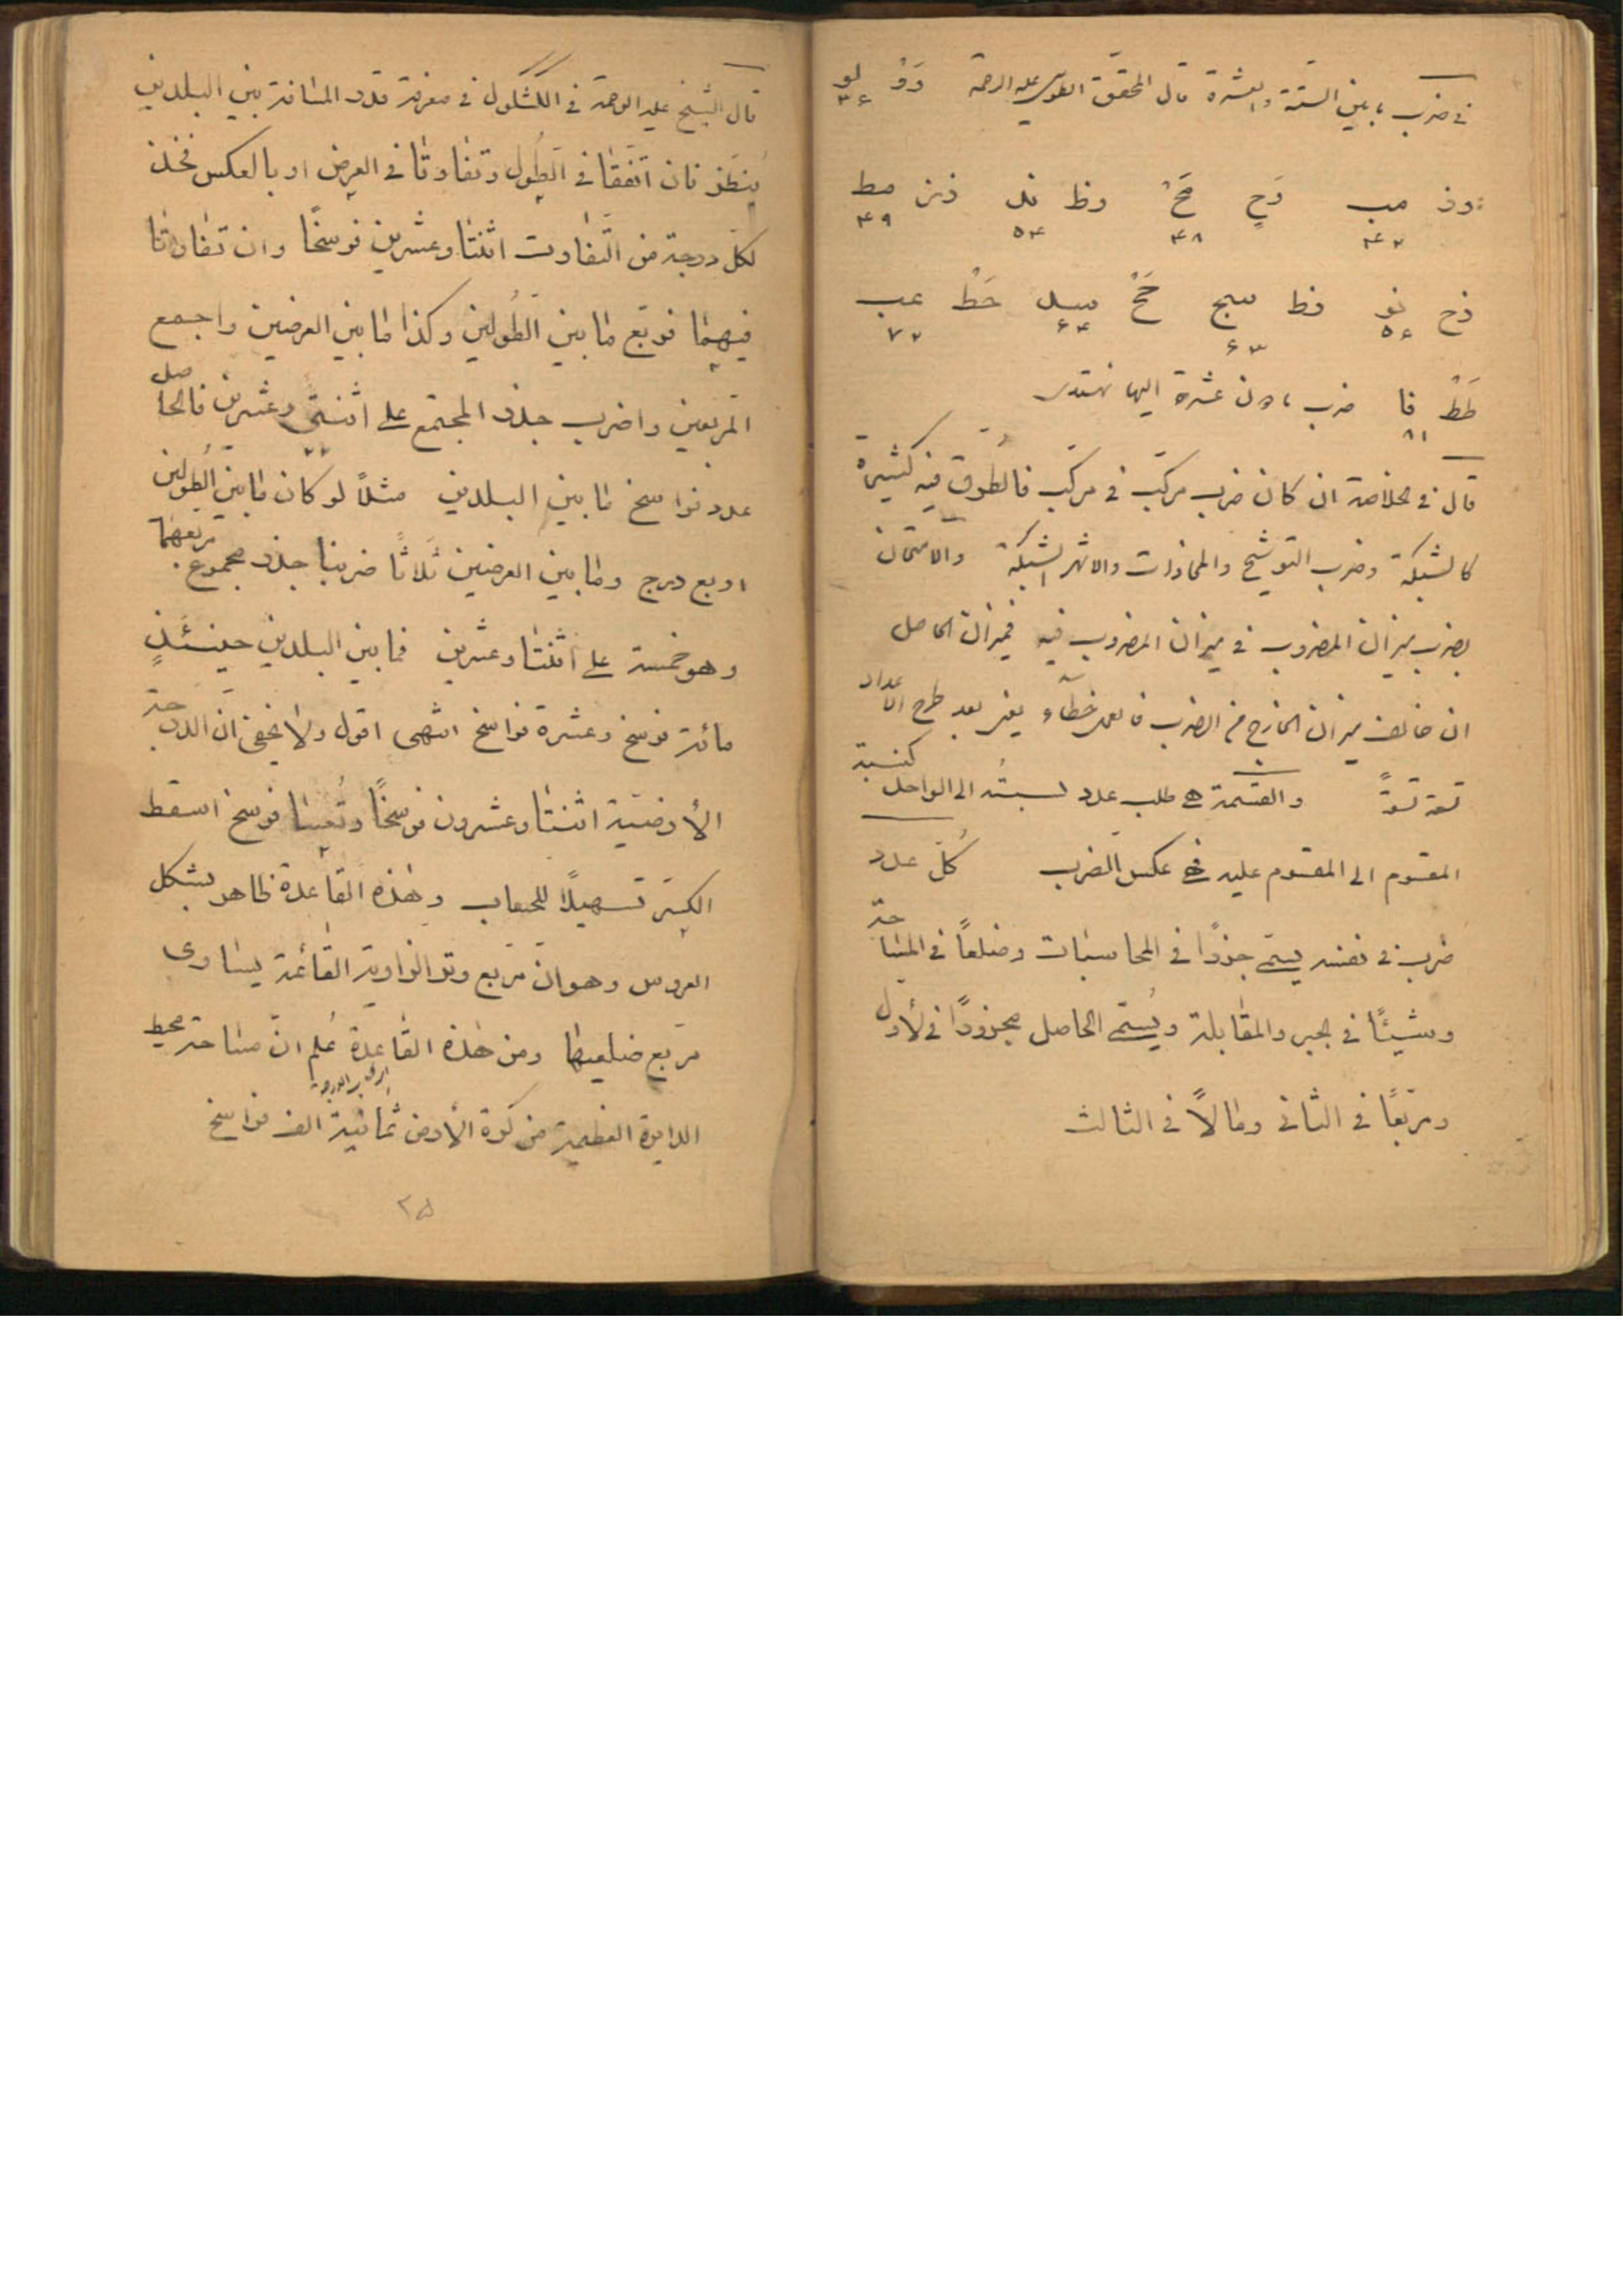 في ضرب ما بين الستة والعشرة قال المحقق الطوسي عليه الرحمة وَوْ لو
۳۶
وز مب وَح مَحْ وط ند زز مط
۴۲ ۴۸ ۵۴ ۴۹
زح نو زط سج حَحْ سد حَطْ عب
۵۶ ۶۳ ۶۴ ۷۲
طَطْ فا ضرب مادون عشرة اليها
۸۱
قال في خلاصة ان كان ضرب مركّب في مركّب فالطُرق فيه كثيرة
كالشبكة وضرب التوشيح والمحاذات والاشهر الشبكة والامتحان
بضرب ميزان المضروب في ميزان المضروب فيه فميزان الحاصل
ان خالف ميزان الخارج من الضرب فالعمل خطاء يعني بعد طرح الاعداد
تسعة تسعةً والقسمة هي طلب عدد نسبتُه الى الواحد كنسبة
المقسوم الى المقسوم عليه فهي عكس الضرب كُلّ عدد
ضرب في نفسه يسمّى جذرًا في المحاسبات وضلعاً في المساحة
وشيئًا في الجبر والمقابلة ويُسمّى الحاصل مجذورًا في الأول
ومربّعًا في الثاني ومالاً في الثالث
قال الشيخ عليه الرحمة في الكشكول في معرفة قدر المسافة بين البلدين
يُنظَر فان اتّفقا في الطول وتفاوتا في العرض او بالعكس فخذ
لكلّ درجة من التفاوت اثنتا وعشرين فرسخًا وان تفاوتا
فيهما فربّع ما بين الطُولين وكذا ما بين العرضين واجمع
المربعين واضرب جذر المجتمع على اثنتي وعشرين فالحاصل
۲۲
عدد فراسخ ما بين البلدين مثلاً لو كان ما بين الطُولين
اربع درج وما بين العرضين ثلاثًا ضربنا جذر مجموع مربعهما
وهو خمسة على اثنتا وعشرين فما بين البلدين حينئذٍ
مائة فرسخ وعشرة فراسخ انتهى اقول ولا يخفى انّ الدرجة
الأرضيّة اثنتا وعشرون فرسخًا وتُسعا فرسخ اسقط
الكسر تسهيلًا للحساب وهذه القاعدة ظاهر بشكل
العروس وهو ان مربّع وتر الزاوية القائمة يساوى
مربّع ضلعيها ومن هذه القاعدة عُلم انّ مساحة محيط
الدايرة العظيمة من كرة الأرض ثمانية الف فراسخ
۲۵